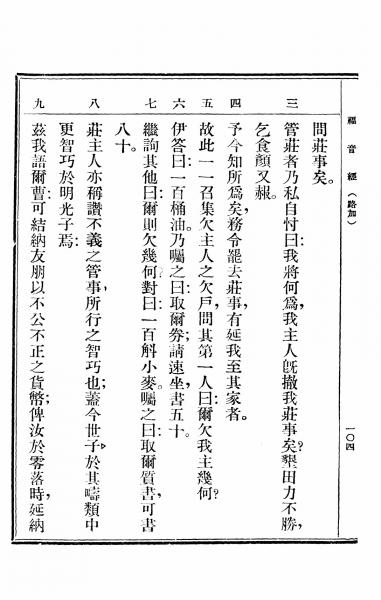 福音經（路加）
一〇四
問莊事矣。
三 管莊者乃私自忖曰：我將何爲，我主人旣撤我莊事矣？墾田力不勝，
乞食顏又赧。
四 予今知所爲矣，務令罷去莊事，有延我至其家者。
五 故此一一召集欠主人之欠戶，問其第一人曰：爾欠我主幾何？
六 伊答曰：一百桶油。乃囑之曰：取爾劵；請速坐，書五十。
七 繼詢其他曰：爾則欠幾何？對曰：一百斛小麥。囑之曰：取爾質書，可書
八十。
八 莊主人亦稱讚不義之管事，所行之智巧也；蓋今世子，於其疇類中
更智巧於明光子焉：
九 茲我語爾曹：可結納友朋以不公不正之貨幣；俾汝於零落時，延納